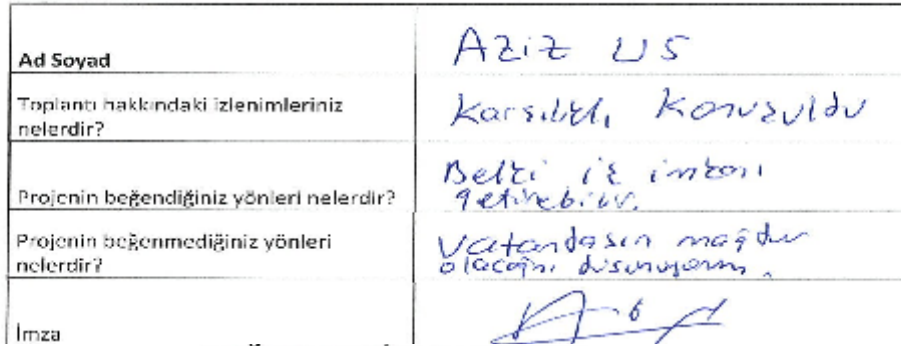 Ad Soyad
Aziz US
Toplantı hakkındaki izlenimleriniz
nelerdir?
Karşılıklı Konuşuldu
Projenin beğendiğiniz yönleri nelerdir?
Belki iş imkanı
getirebilir.
Projenin beğenmediğiniz yönleri
nelerdir?
Vatandaşın mağdur
olacağını düşünüyorum.
İmza